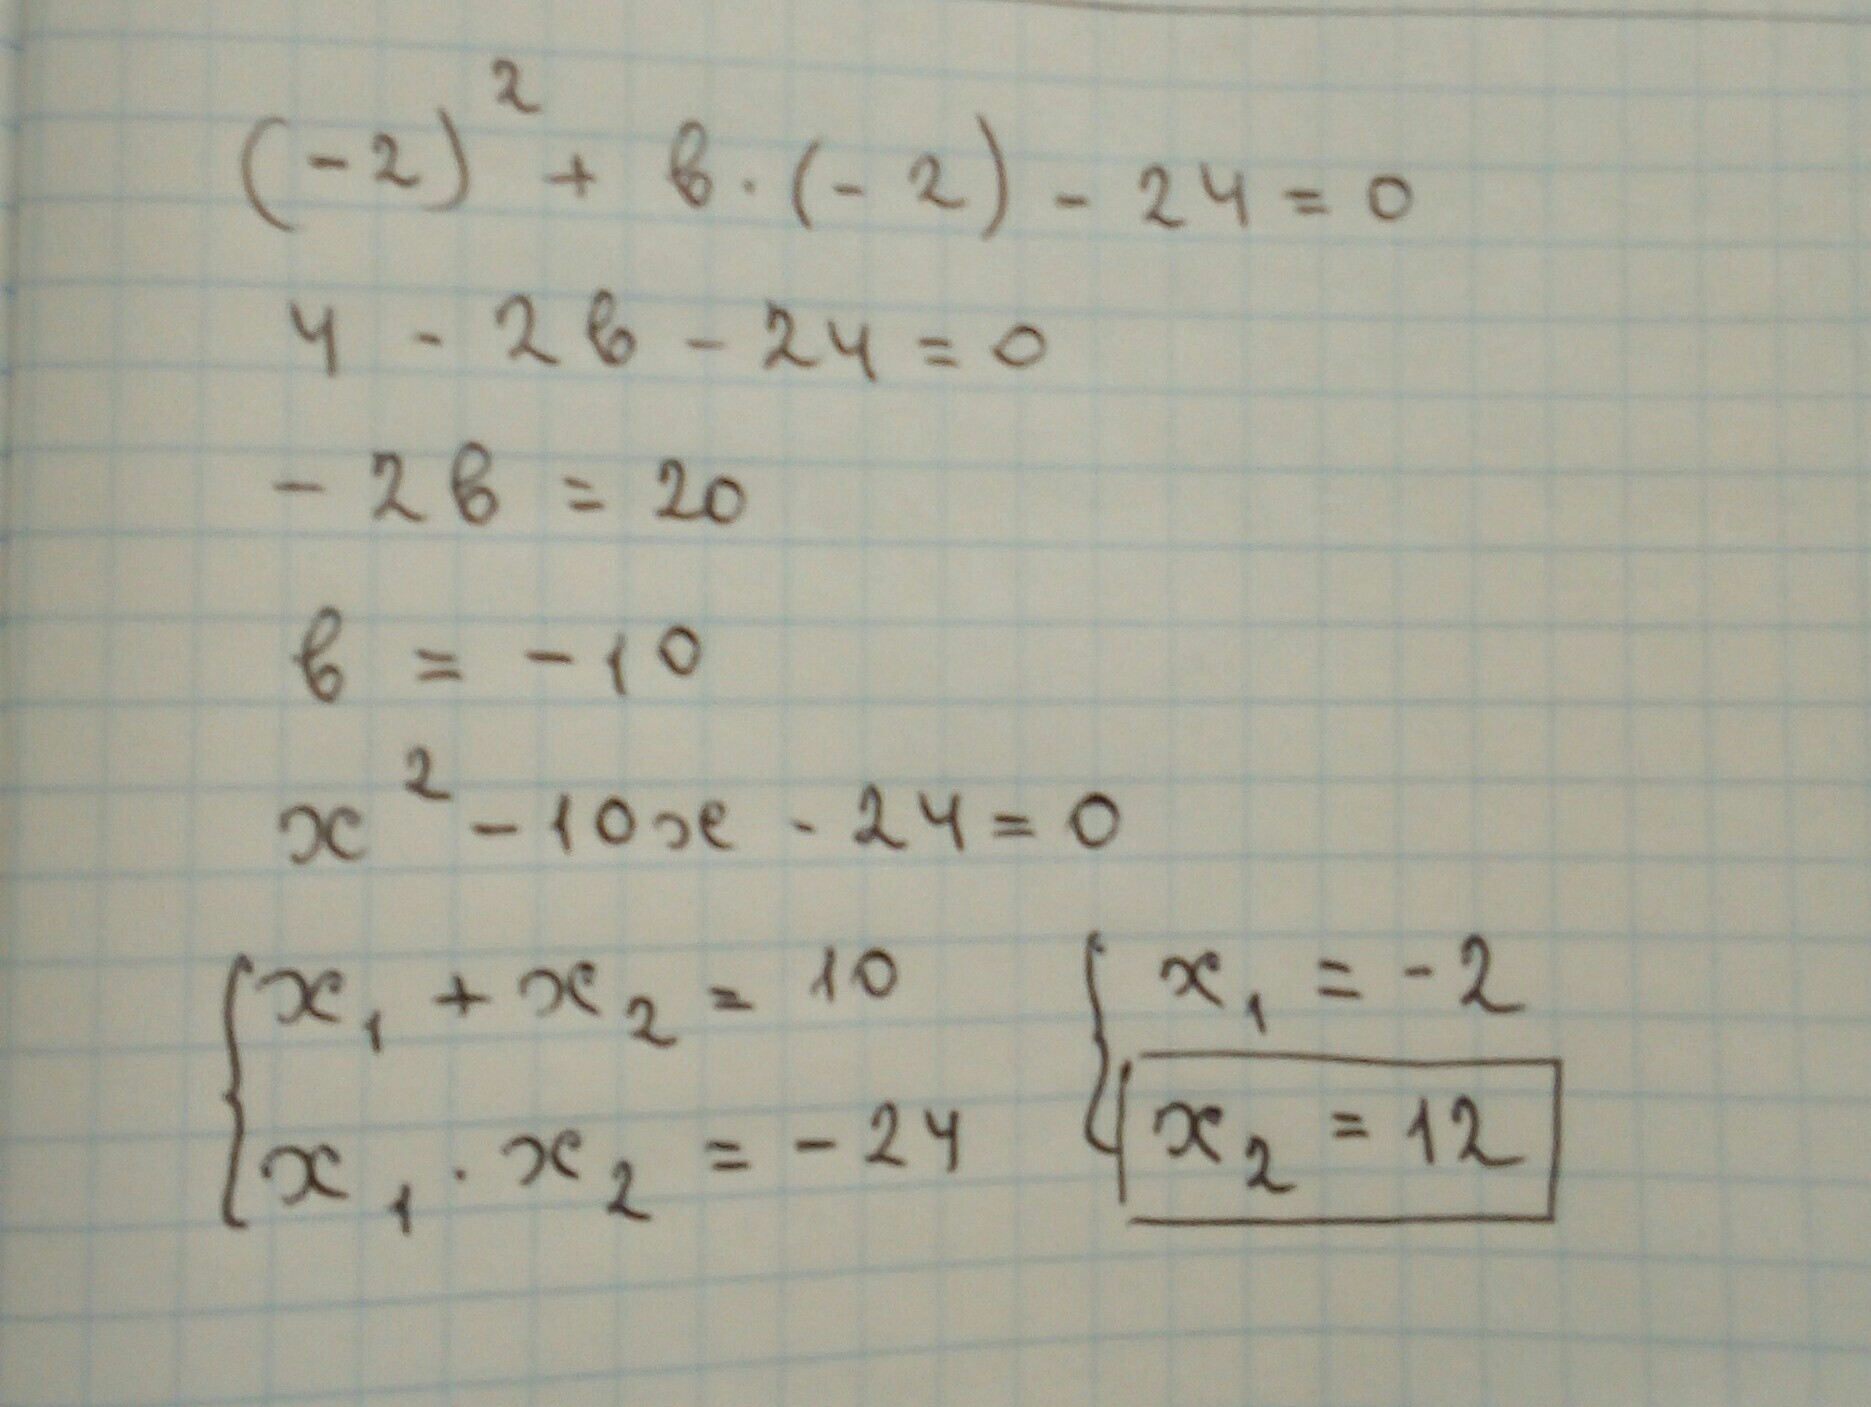 (-2)² + в · (-2) - 24 = 0
4 - 2в - 24 = 0
- 2в = 20
в = -10
x² - 10x - 24 = 0
{ x₁ + x₂ = 10 { x₁ = -2
x₁ · x₂ = -24 x₂ = 12